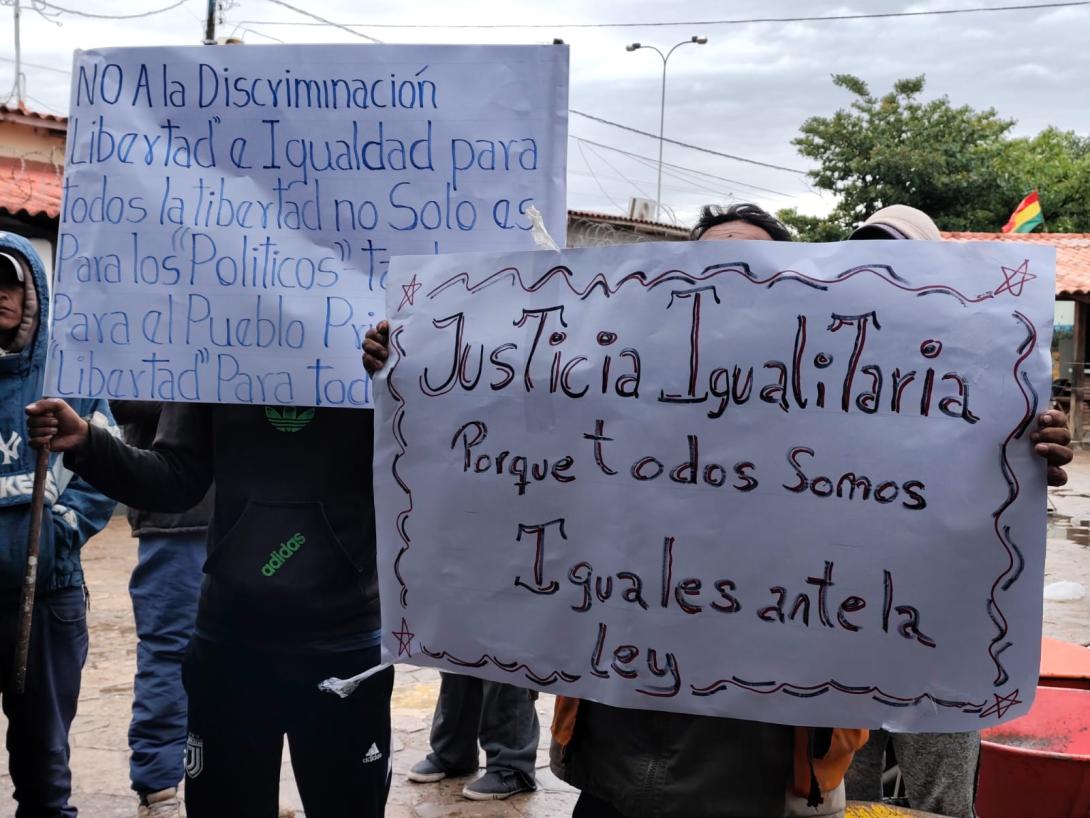 NO A la Discriminación
"Libertad" e Igualdad para
todos la libertad no Solo es
Para los "Politicos"
Para el Pueblo
"Libertad" Para
JusTicia IgualiTaria
Porque todos Somos
Iguales ante la
ley
adidas
adidas
NY